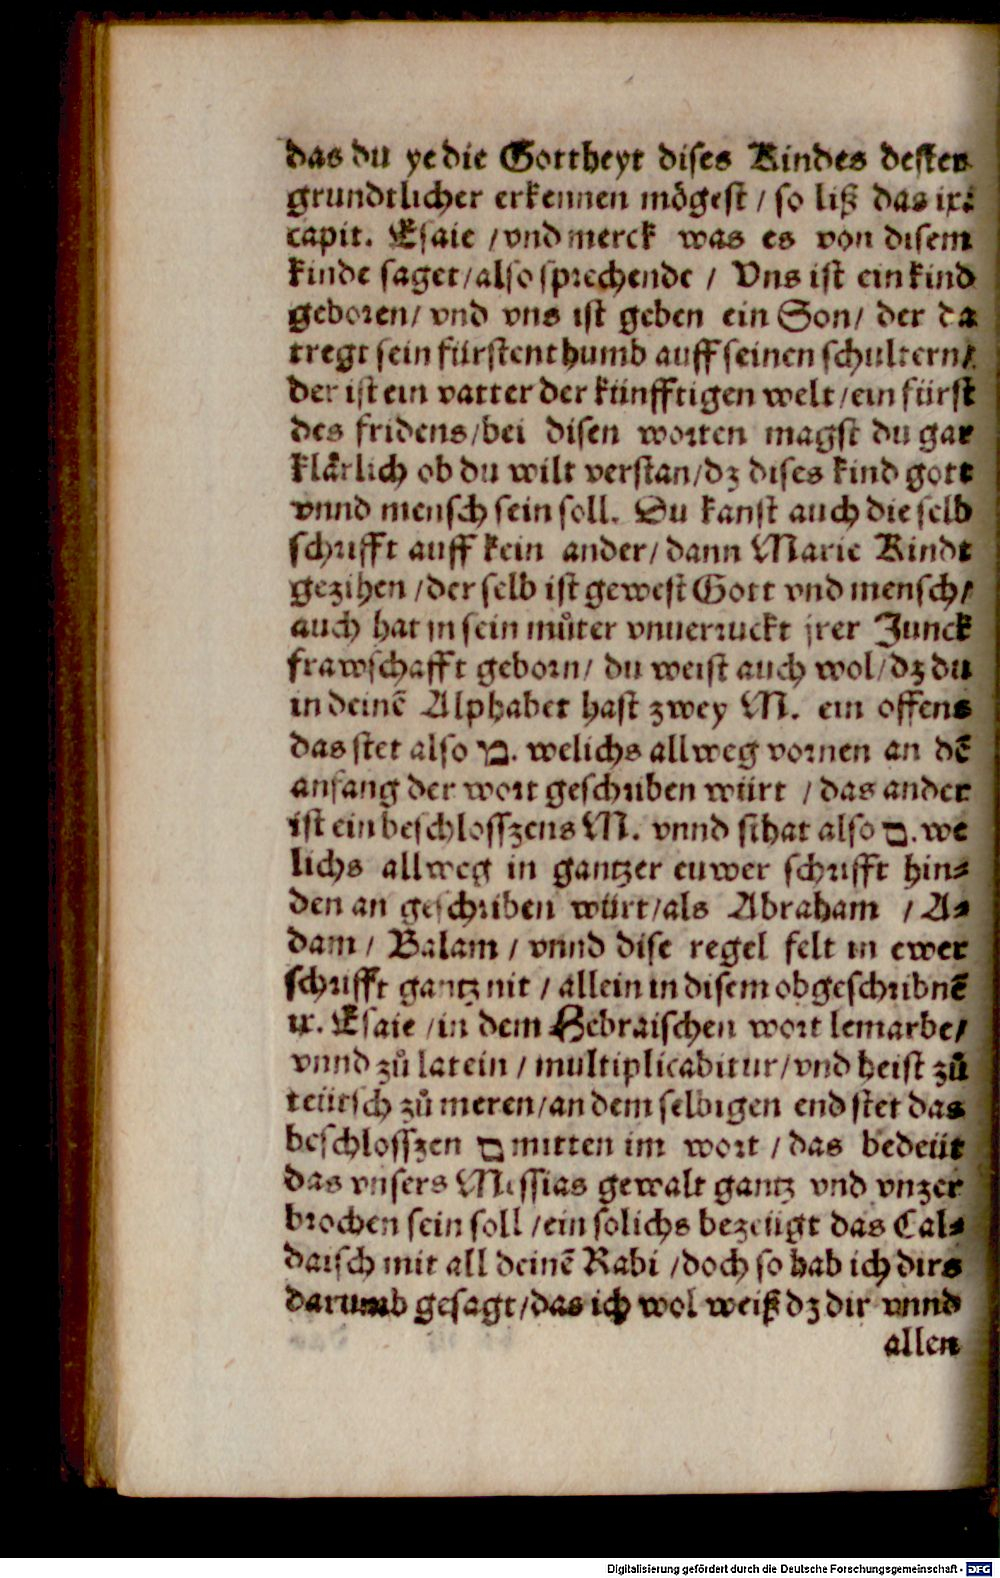 das du ye die Gottheyt dises Kindes dester
grundtlicher erkennen mögest / so liß das ix:
capit. Esaie / vnd merck was es von disem
kinde saget / also sprechende / Vns ist ein kind
geboren / vnd vns ist geben ein Son / der da
tregt sein fürstenthumb auff seinen schultern /
der ist ein vatter der künfftigen welt / ein fürst
des fridens / bei disen worten magst du gar
klårlich ob du wilt verstan / dz dises kind gott
vnnd mensch sein soll. Du kanst auch die selb
schrifft auff kein ander / dann Marie Kindt
gezihen / der selb ist gewest Gott vnd mensch /
auch hat in sein můter vnuerruckt jrer Junck
frawschafft geborn / du weist auch wol / dz du
in deinē Alphabet hast zwey M. ein offens
das stet also מ. welichs allweg vornen an dē
anfang der wort geschriben würt / das ander
ist ein beschlosszens M. vnnd sihat also ם. we
lichs allweg in gantzer euwer schrifft hin⸗
den an geschriben würt / als Abraham / A⸗
dam / Balam / vnnd dise regel felt in ewer
schrifft gantz nit / allein in disem obgeschribnē
ix. Esaie / in dem Hebraischen wort lemarbe /
vnnd zů latein / multiplicabitur / vnd heist zů
teütsch zů meren / an dem selbigen end stet das
beschlosszen ם mitten im wort / das bedeüt
das vnsers Messias gewalt gantz vnd vnzer
brochen sein soll / ein solichs bezeügt das Cal⸗
daisch mit all deinē Rabi / doch so hab ich dirs
darumb gesagt / das ich wol weiß dz dir vnnd
allen
Digitalisierung gefördert durch die Deutsche Forschungsgemeinschaft - DFG